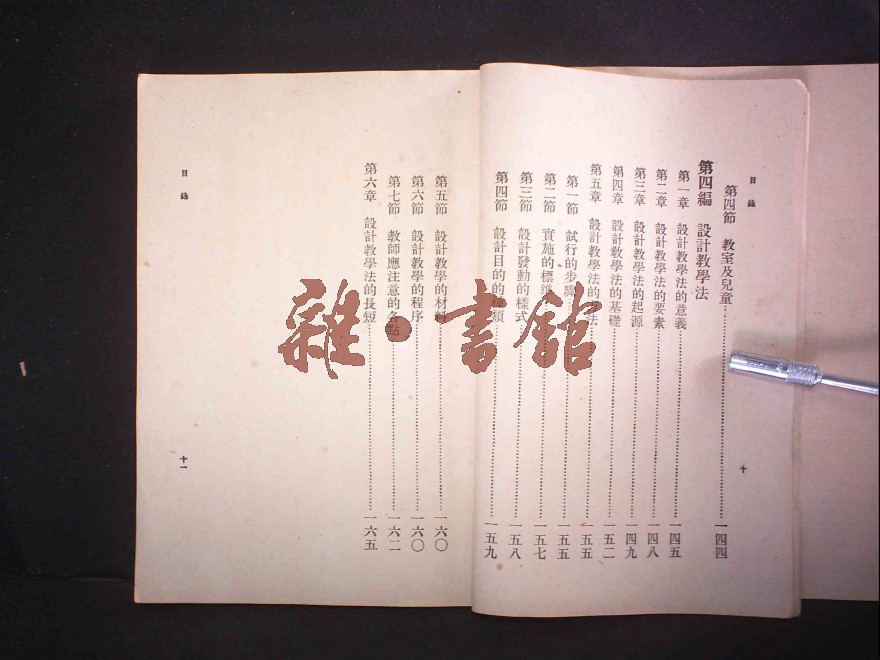 目錄
第四節 教室及兒童 一四四
第四編 設計教學法
第一章 設計教學法的意義 一四五
第二章 設計教學法的要素 一四八
第三章 設計教學法的起源 一四九
第四章 設計教學法的基礎 一五二
第五章 設計教學法的 法 一五五
第一節 試行的步驟 一五五
第二節 實施的標準 一五七
第三節 設計發動的樣式 一五八
第四節 設計目的的種類 一五九
十
目錄
第五節 設計教學的材料 一六〇
第六節 設計教學的程序 一六〇
第七節 教師應注意的各點 一六二
第六章 設計教學法的長短 一六五
十一
雜·書館